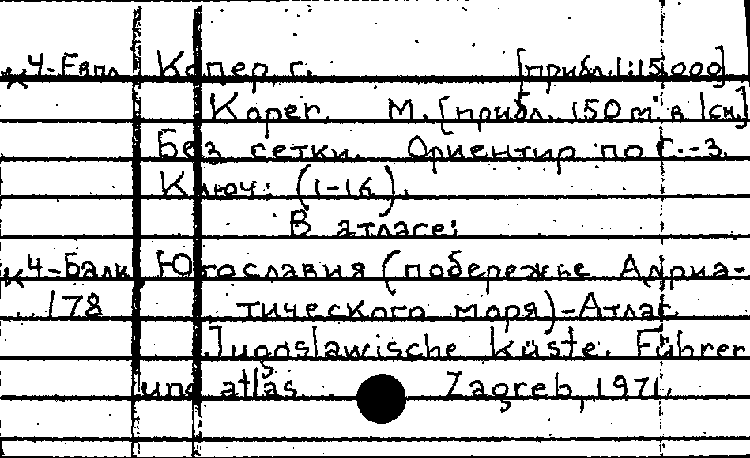 к4-Евпл Копер г. [прибл. 1:15.000]
Koper. М. [прибл. 150 m в 1см.]
Без сетки. Ориентир по С.-З.
Ключ: (1-16).
В атласе:
к4-Балк Югославия (побережье Адриа-
178 тического моря)-Атлас
Jugoslawische Küste. Führer
und atlas. Zagreb, 1971.